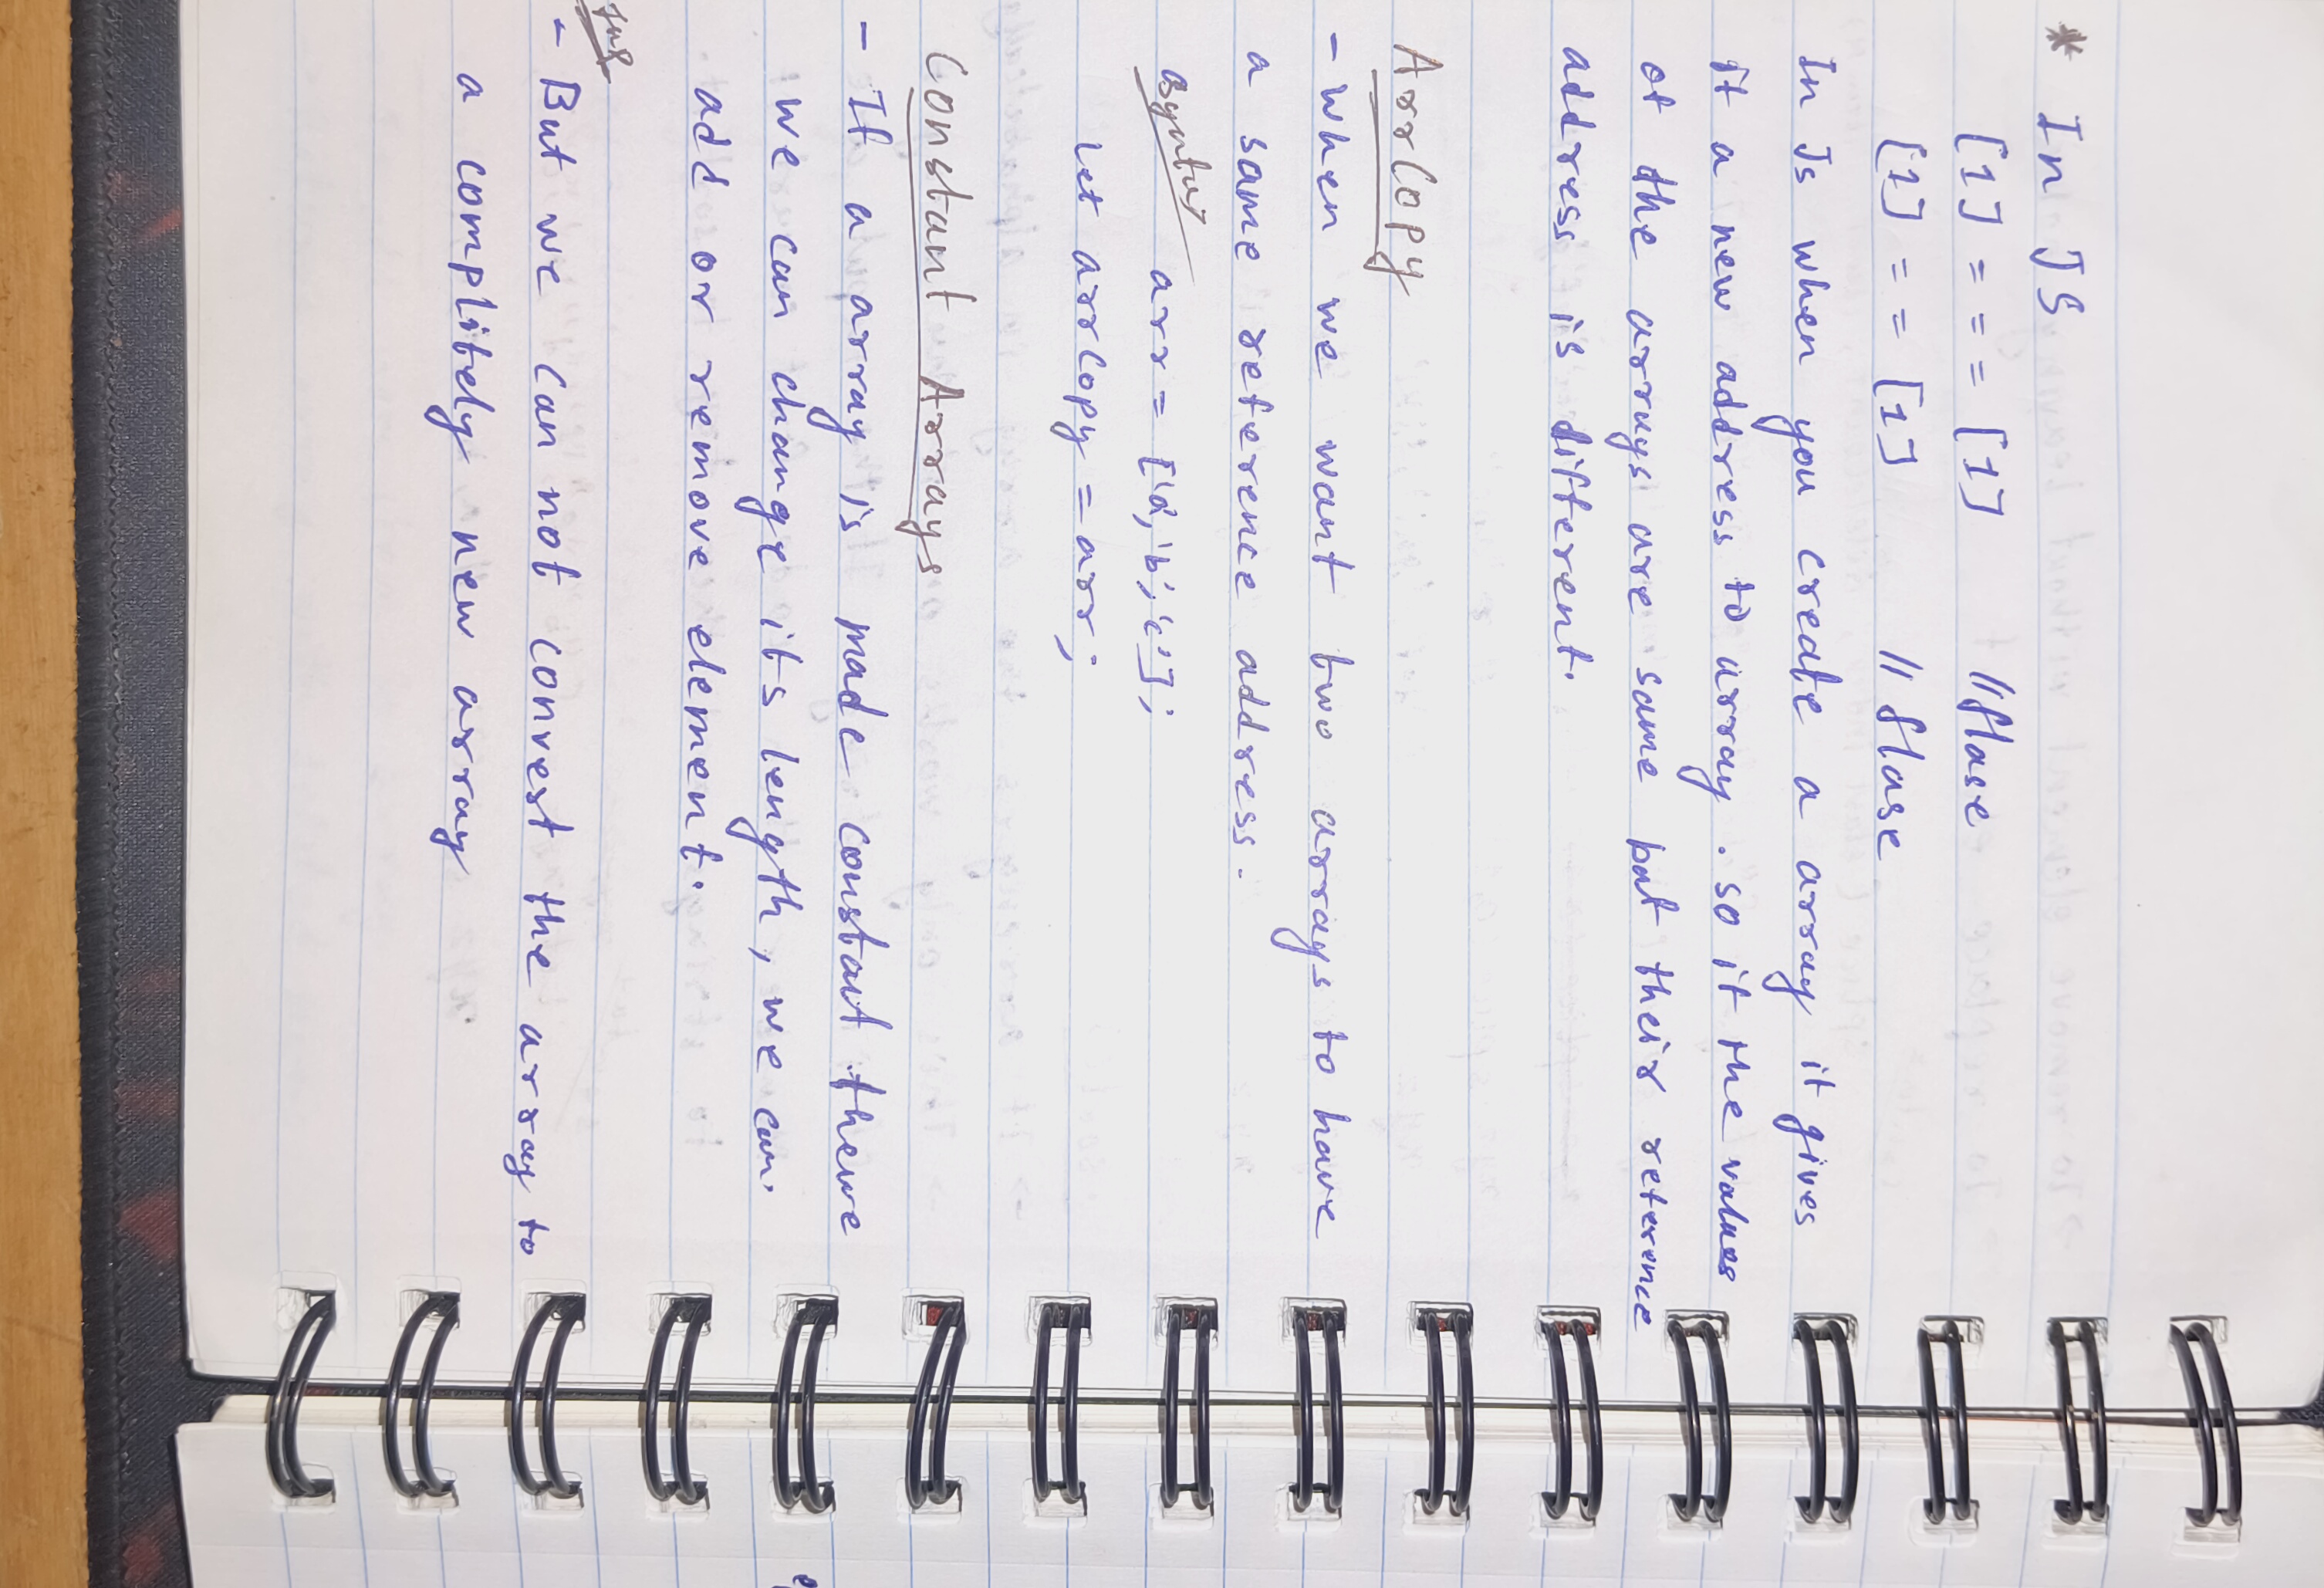 * In JS
[1] === [1] // flase
[1] == [1] // flase
In Js when you create a array it gives
it a new address to array . so if the values
of the arrays are same but their reference
address is different.
ArrCopy
- When we want two arrays to have
a same reference address.
syntax arr = ['a', 'b', 'c'];
Let arrCopy = arr;
Constant Arrays
- If a array is made constant
we can change its length, we can.
add or remove element.
Imp
- But we can not convert the array to
a complitely new array